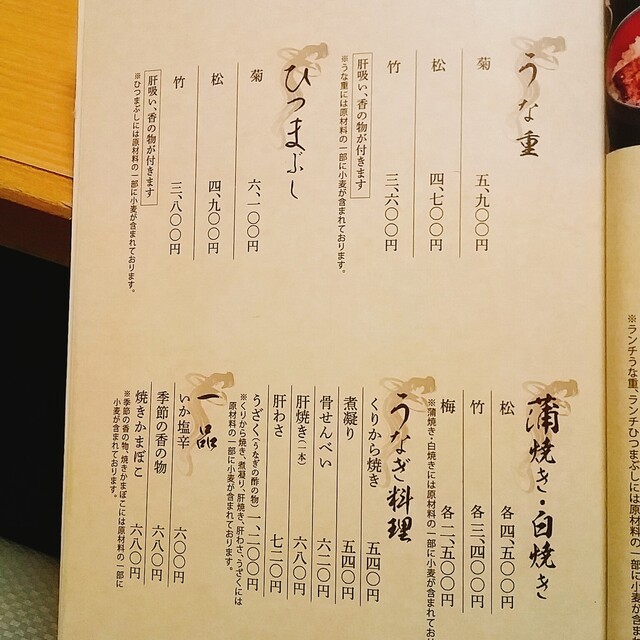 うな重
菊 五、九〇〇円
松 四、七〇〇円
竹 三、六〇〇円
肝吸い、香の物が付きます
※うな重には原材料の一部に小麦が含まれております。
ひつまぶし
菊 六、一〇〇円
松 四、九〇〇円
竹 三、八〇〇円
肝吸い、香の物が付きます
※ひつまぶしには原材料の一部に小麦が含まれております。
蒲焼き・白焼き
松 各四、五〇〇円
竹 各三、四〇〇円
梅 各二、五〇〇円
※蒲焼き・白焼きには原材料の一部に小麦が含まれており
うなぎ料理
くりから焼き 五四〇円
煮凝り 五四〇円
骨せんべい 六二〇円
肝焼き（一本） 六八〇円
肝わさ 七二〇円
うざく（うなぎの酢の物） 一、二〇〇円
※くりから焼き、煮凝り、肝焼き、肝わさ、うざくには
原材料の一部に小麦が含まれております。
一品
いか塩辛 六〇〇円
季節の香の物 六八〇円
焼きかまぼこ 六八〇円
※季節の香の物、焼きかまぼこには原材料の一部に
小麦が含まれております。
※ランチうな重、ランチひつまぶしには原材料の一部に小麦が含ま